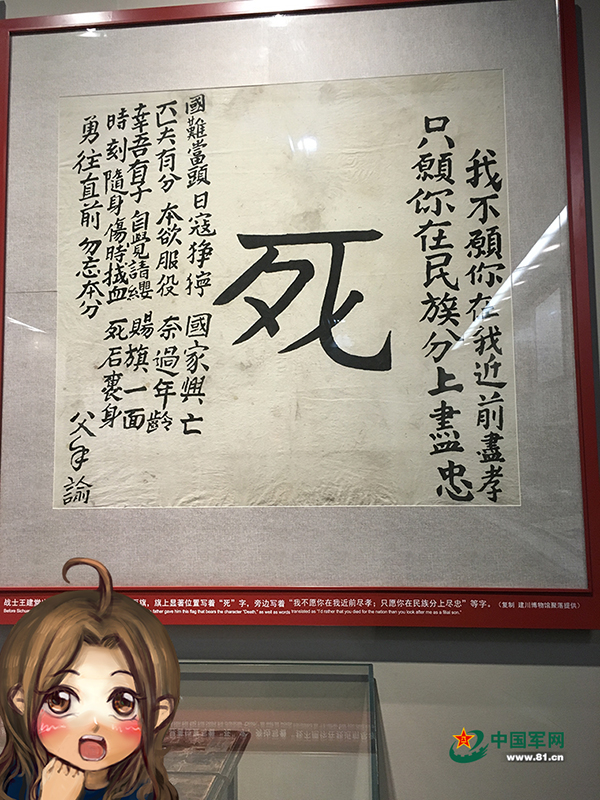 我不願你在我近前盡孝
只願你在民族分上盡忠
死
國難當頭 日寇狰獰 國家興亡
匹夫有分 本欲服役 奈過年齡
幸吾有子 自覺請纓 賜旗一面
時刻隨身 傷時拭血 死后裹身
勇往直前 勿忘本分
父手諭
战士王建 旗，旗上显著位置写着“死”字，旁边写着“我不愿你在我近前尽孝；只愿你在民族分上尽忠”等字。（复制 建川博物馆聚落提供）
Before Sichuan father gave him this flag that bears the character "Death," as well as words translated as "I'd rather that you died for the nation than you look after me as a filial son."
中国军网
www.81.cn